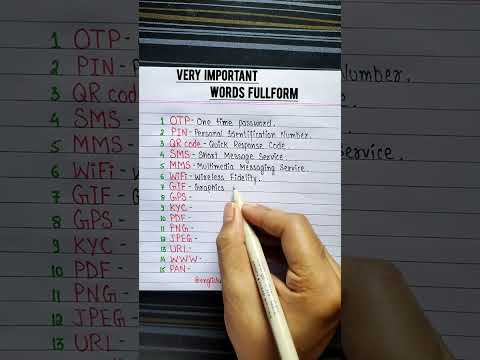 VERY IMPORTANT
WORDS FULLFORM
1 OTP- One time password.
2 PIN- Personal Identification Number.
3 QR code- Quick Response Code.
4 SMS- Short Message Service.
5 MMS- Multimedia Messaging Service.
6 WiFi- Wireless Fidelity.
7 GIF- Graphics
8 GPS-
9 KYC-
10 PDF-
11 PNG-
12 JPEG-
13 URL-
14 WWW-
15 PAN-
1 OTP-
2 PIN-
3 QR code
4 SMS-
5 MMS-
6 WiFi-
7 GIF-
8 GPS-
9 KYC-
10 PDF-
11 PNG-
12 JPEG-
13 URL-
Number.
Service.